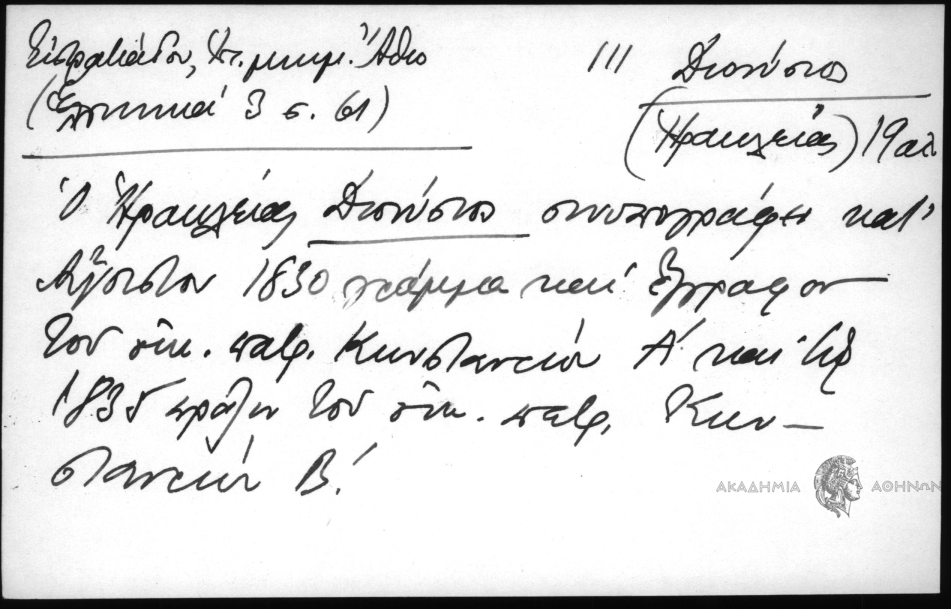 Εὐστρατιάδου, Ἱστ. μνημ. Ἄθω
(Ἑλληνικά 3 σ. 61)
111 Διονύσιος
(Ἡρακλείας) 19 αἰ.
Ὁ Ἡρακλείας Διονύσιος συνυπογράφει κατ'
Αὔγουστον 1830 γράμμα καί ἔγγραφον
τοῦ οἰκ. πατρ. Κωνσταντίου Α' καί τήν
1835 πρᾶξιν τοῦ οἰκ. πατρ. Κων-
σταντίου Β'.
ΑΚΑΔΗΜΙΑ ΑΘΗΝΩΝ